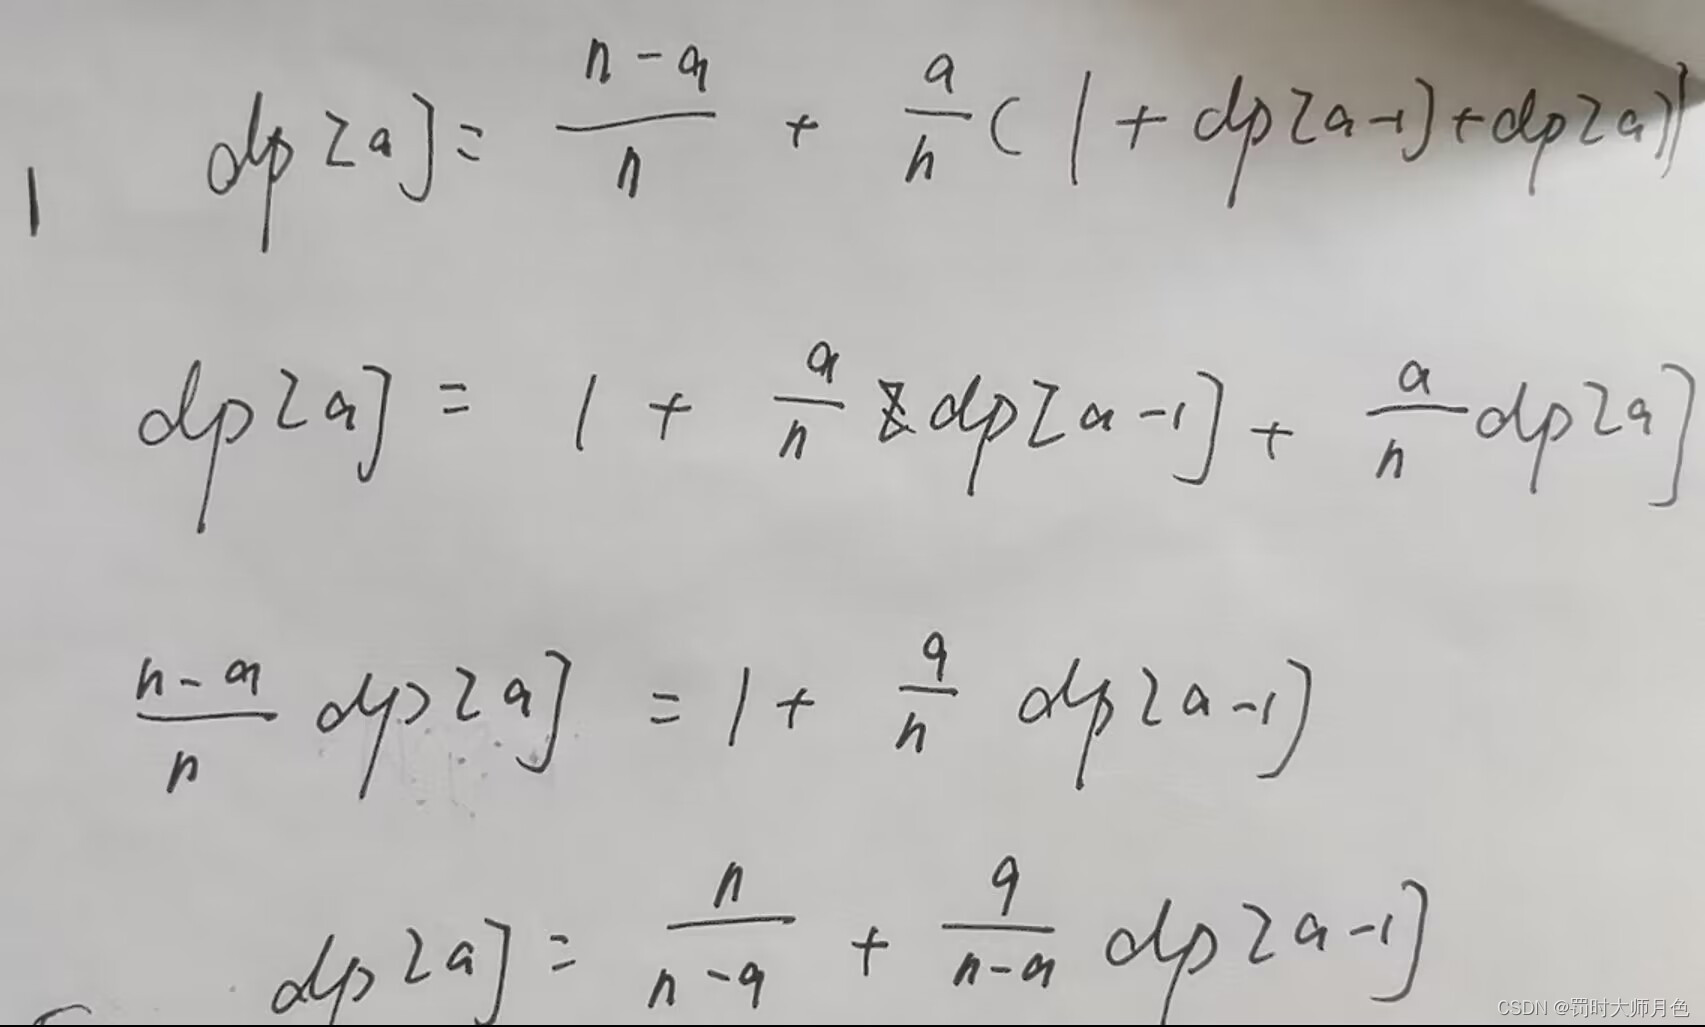 dp[a] = \frac{n-a}{n} + \frac{a}{n} ( 1 + dp[a-1] + dp[a])
1
dp[a] = 1 + \frac{a}{n} dp[a-1] + \frac{a}{n} dp[a]
\frac{n-a}{n} dp[a] = 1 + \frac{a}{n} dp[a-1]
dp[a] = \frac{n}{n-a} + \frac{a}{n-a} dp[a-1]
CSDN @罚时大师月色